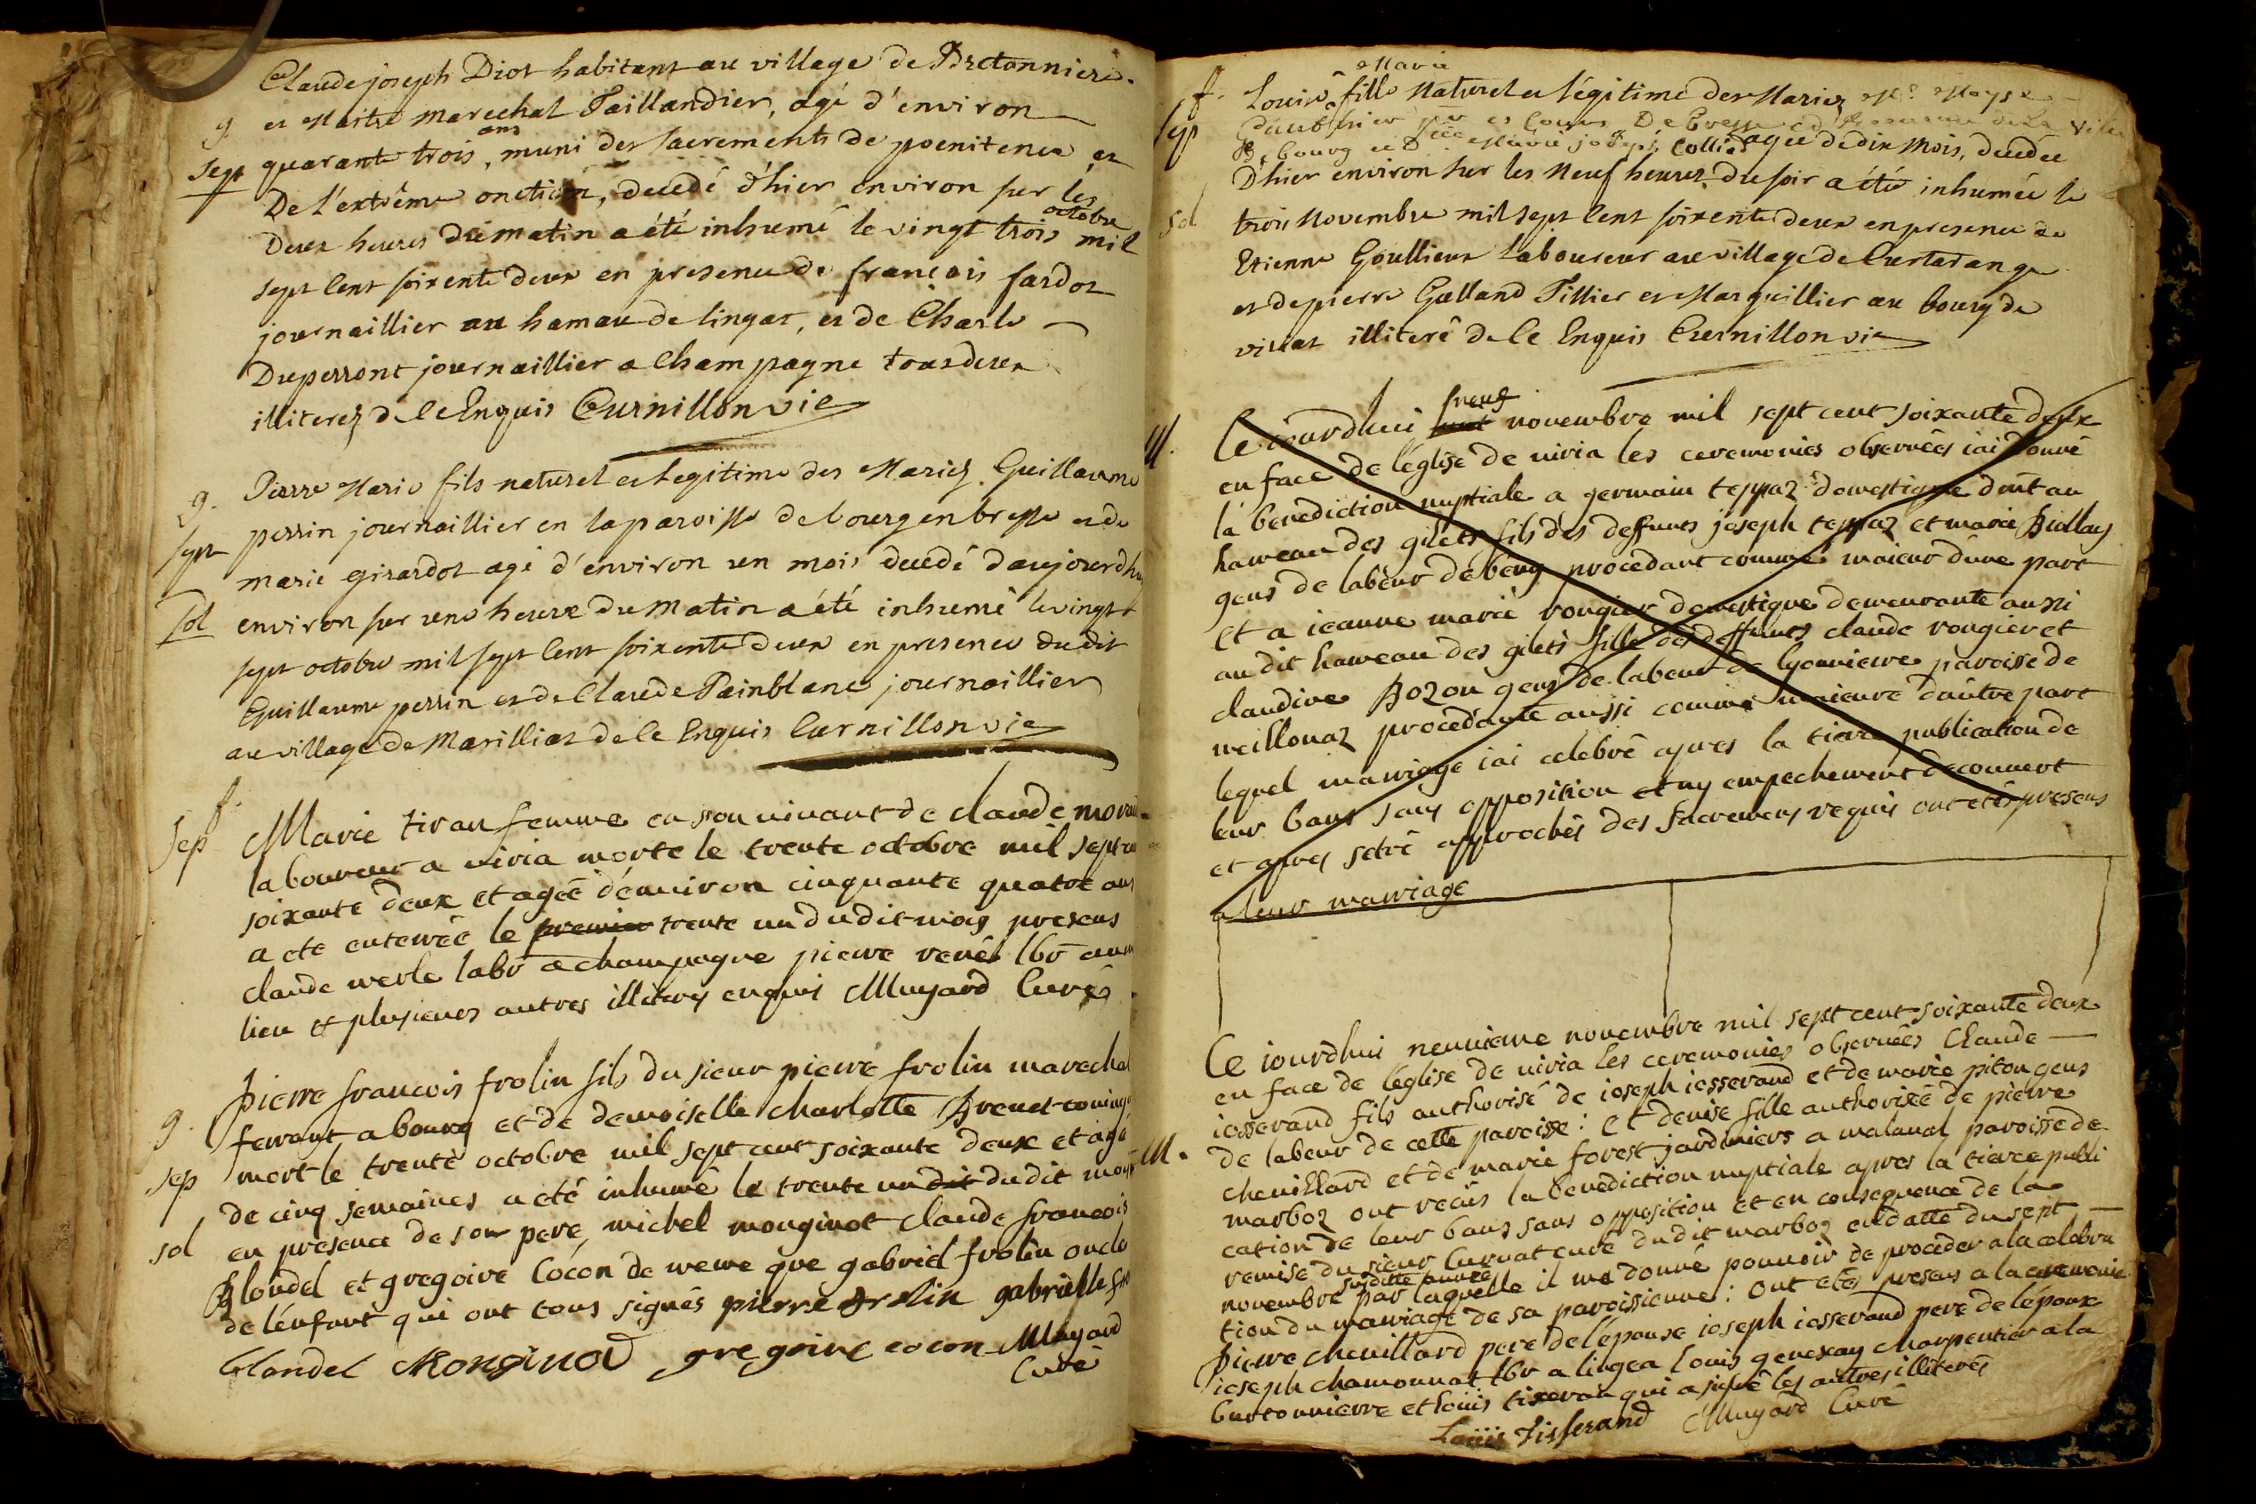 Claude joseph Diot habitant au village de Bretonniere.
g et Maitre marechal Taillandier, agé d'environ
sept quarante trois ans, muni des sacrements de poenitence et
De l'extrême onction, decedé d'hier environ sur les
Deux heures du matin a été inhumé le vingt trois octobre mil
sept cent soixente deux en presence de françois fardot
journaillier au hamau de lingat, et de Charle
Duperront journaillier a Champagne tous deux
illiterez de ce Enquis Curnillon vic
g. Pierre Marie fils naturel et legitime des Mariez Guillaume
sept perrin journaillier en la paroisse de bourg en bresse et de
marie girardot agé d'environ un mois decedé d'aujourdhuy
sol environ sur une heure du matin a été inhumé le vingt
sept octobre mil sept cent soixente deux en presence dudit
Guillaume perrin et de Claude Painblanc journaillier
au village de Marilliat de ce Enquis Curnillon vic
f.
sep Marie tiran femme en son vivant de claude morai
laboureur a viria morte le trente octobre mil sept cen
soixante deux et agée d'environ cinquante quatre ans
a ete enterrée le premier trente un dudit mois presens
claude merle labr a champagne pierre renel lbr au
lieu et plusieurs autres illiterez enquis Muyard Curé
pierre francois frolin fils du sieur pierre frolin marechal
g. ferrant a bourg et de demoiselle charlotte Brenet
sep mort le trente octobre mil sept cent soixante deux et agé
de cinq semaines a eté inhumé le trente un dit dudit mois
sol en presence de son pere, michel monginot claude francois
Blondel et gregoire Cocon de meme que gabriel frolin oncle
de l'enfant qui ont tous signés pierre frolin gabrielle
blandel Monginod gregoire cocon Muyard
Curé
f. Louise Marie fille Naturel et légitime des Mariez
sep
de bourg et Marie joseph Collied agée de dix Mois, decedée
D'hier environ sur les Neuf heures du soir a été inhumée le
sol trois Novembre mil sept Cent soixente deux en presence de
Etienne Goullieux Laboureur au village de Curtarange
et de pierre Galland Tillier et Marguillier au bourg de
viriat illiteré de Ce Enquis Curnillon vic
M. Ce iourdhui neuf novembre mil sept cent soixante deux
en face de l'église de viria les ceremonies observées iai donné
la benediction nuptiale a germain teppaz domestique dmt au
hameau des gilets fils des deffunts joseph teppaz et marie Biollay
gens de labeur de beny procedant comme maieur d'une part
et a ieanne marie rongier domestique demeurante aussi
au dit hameau des gilets fille des deffunts claude rongier et
claudine Bozon gens de labeur de lyonniere paroisse de
meillonaz procedante aussi comme maieure d'autre part
lequel mariage iai celebré apres la tierce publication de
leur bans sans opposition et ny empechement decouvert
et apres setre approchés des sacremens requis ont etés presens
a leur mariage
Ce iourdhui neuvieme novembre mil sept cent soixante deux
en face de l'église de viria les ceremonies observées Claude
iosserand fils authorisé de ioseph iosserand et de marie piton gens
M. de labeur de cette paroisse: et denise fille authorisée de pierre
chevillard et de marie forest jardiniers a malaval paroisse de
marboz ont recus la benediction nuptiale apres la tierce publi
cation de leur bans sans opposition et en consequence de la
remise du sieur Curvat curé dudit marboz en datte du sept
novembre susditte année par laquelle il ma donné pouvoir de proceder a la celebra
tion du mariage de sa paroissienne: ont etés presens a la ceremonie
pierre chevillard pere de l'épouse ioseph iosserand pere de l'époux
ioseph chamonnat lbr a lingea louis genexay charpentier a la
burtonnierre et louis tixeran qui a signé les autres illiterés
Louis Tisserand Muyard Curé